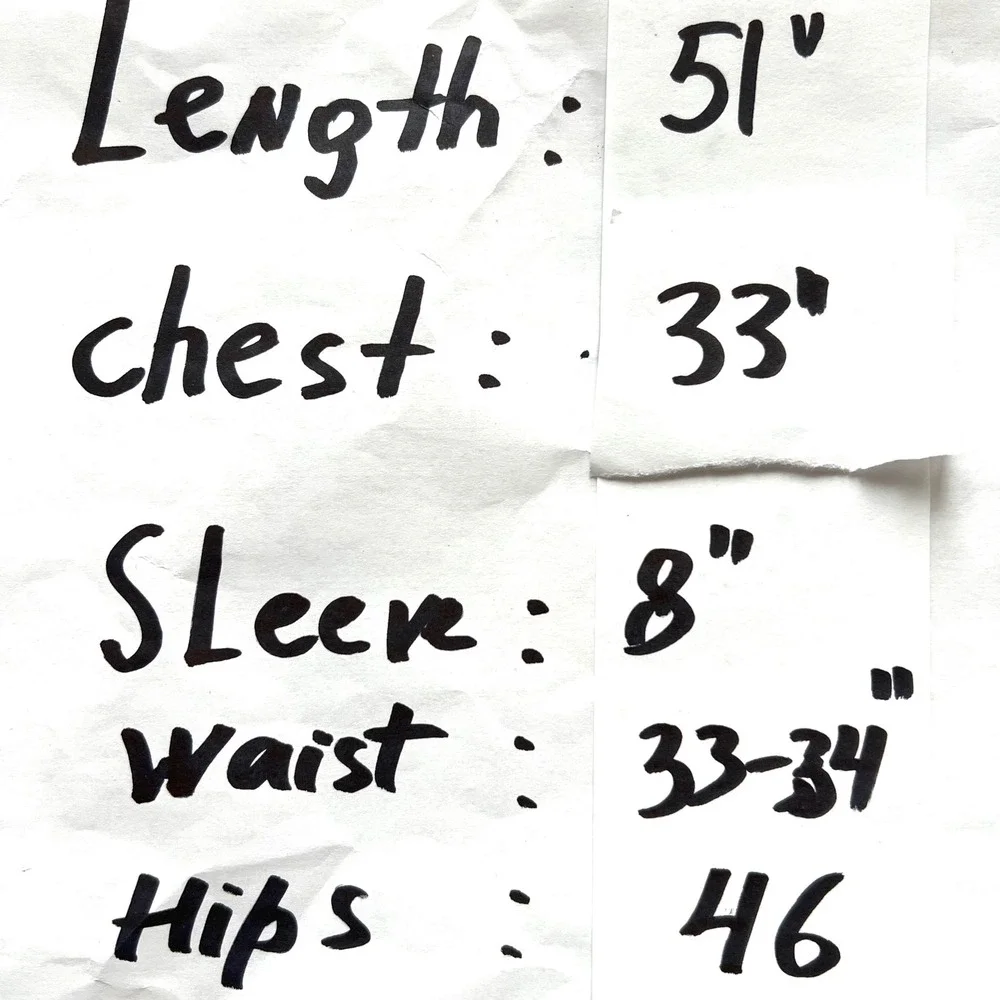 Length: 51"
chest: 33"
SLeeve: 8"
waist: 33-34"
Hips: 46